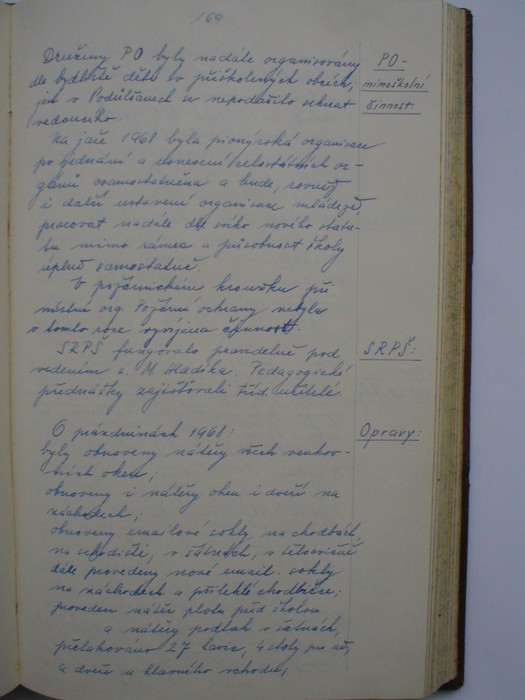 169
Družiny PO byly nadále organisovány
dle bydliště dětí v přiškolených obcích,
jen v Podůlšanech se nepodařilo sehnat
vedoucího.
PO -
mimoškolní
činnost.
Na jaře 1968 byla pionýrská organisace
po jednání a usnesení celostátních or-
gánů osamostatněna a bude, rovněž
i další ustavené organisace mládeže,
pracovat nadále dle svého nového statu-
tu mimo rámec a působnost školy
úplně samostatně.
V požárnickém kroužku při
místní org. Požární ochrany nebyla
v tomto roce vyvíjena činnost.
SRPŠ fungovalo pravidelně pod
vedením s. M. Hladíka. Pedagogické
přednášky zajišťovali tříd. učitelé.
SRPŠ:
O prázdninách 1968:
byly obnoveny nátěry všech venkov-
ních oken;
obnoveny i nátěry oken i dveří na
záchodech;
obnoveny emailové sokly na chodbách,
na schodiště, v šatnách, v tělocvičně
dále provedeny nové email. sokly
na záchodech a přilehlé chodbičce;
proveden nátěr plotu před školou
a nátěry podlah v šatnách,
přelakováno 27 lavic, 4 stoly pro uč.,
a dveře u hlavního vchodu;
Opravy: